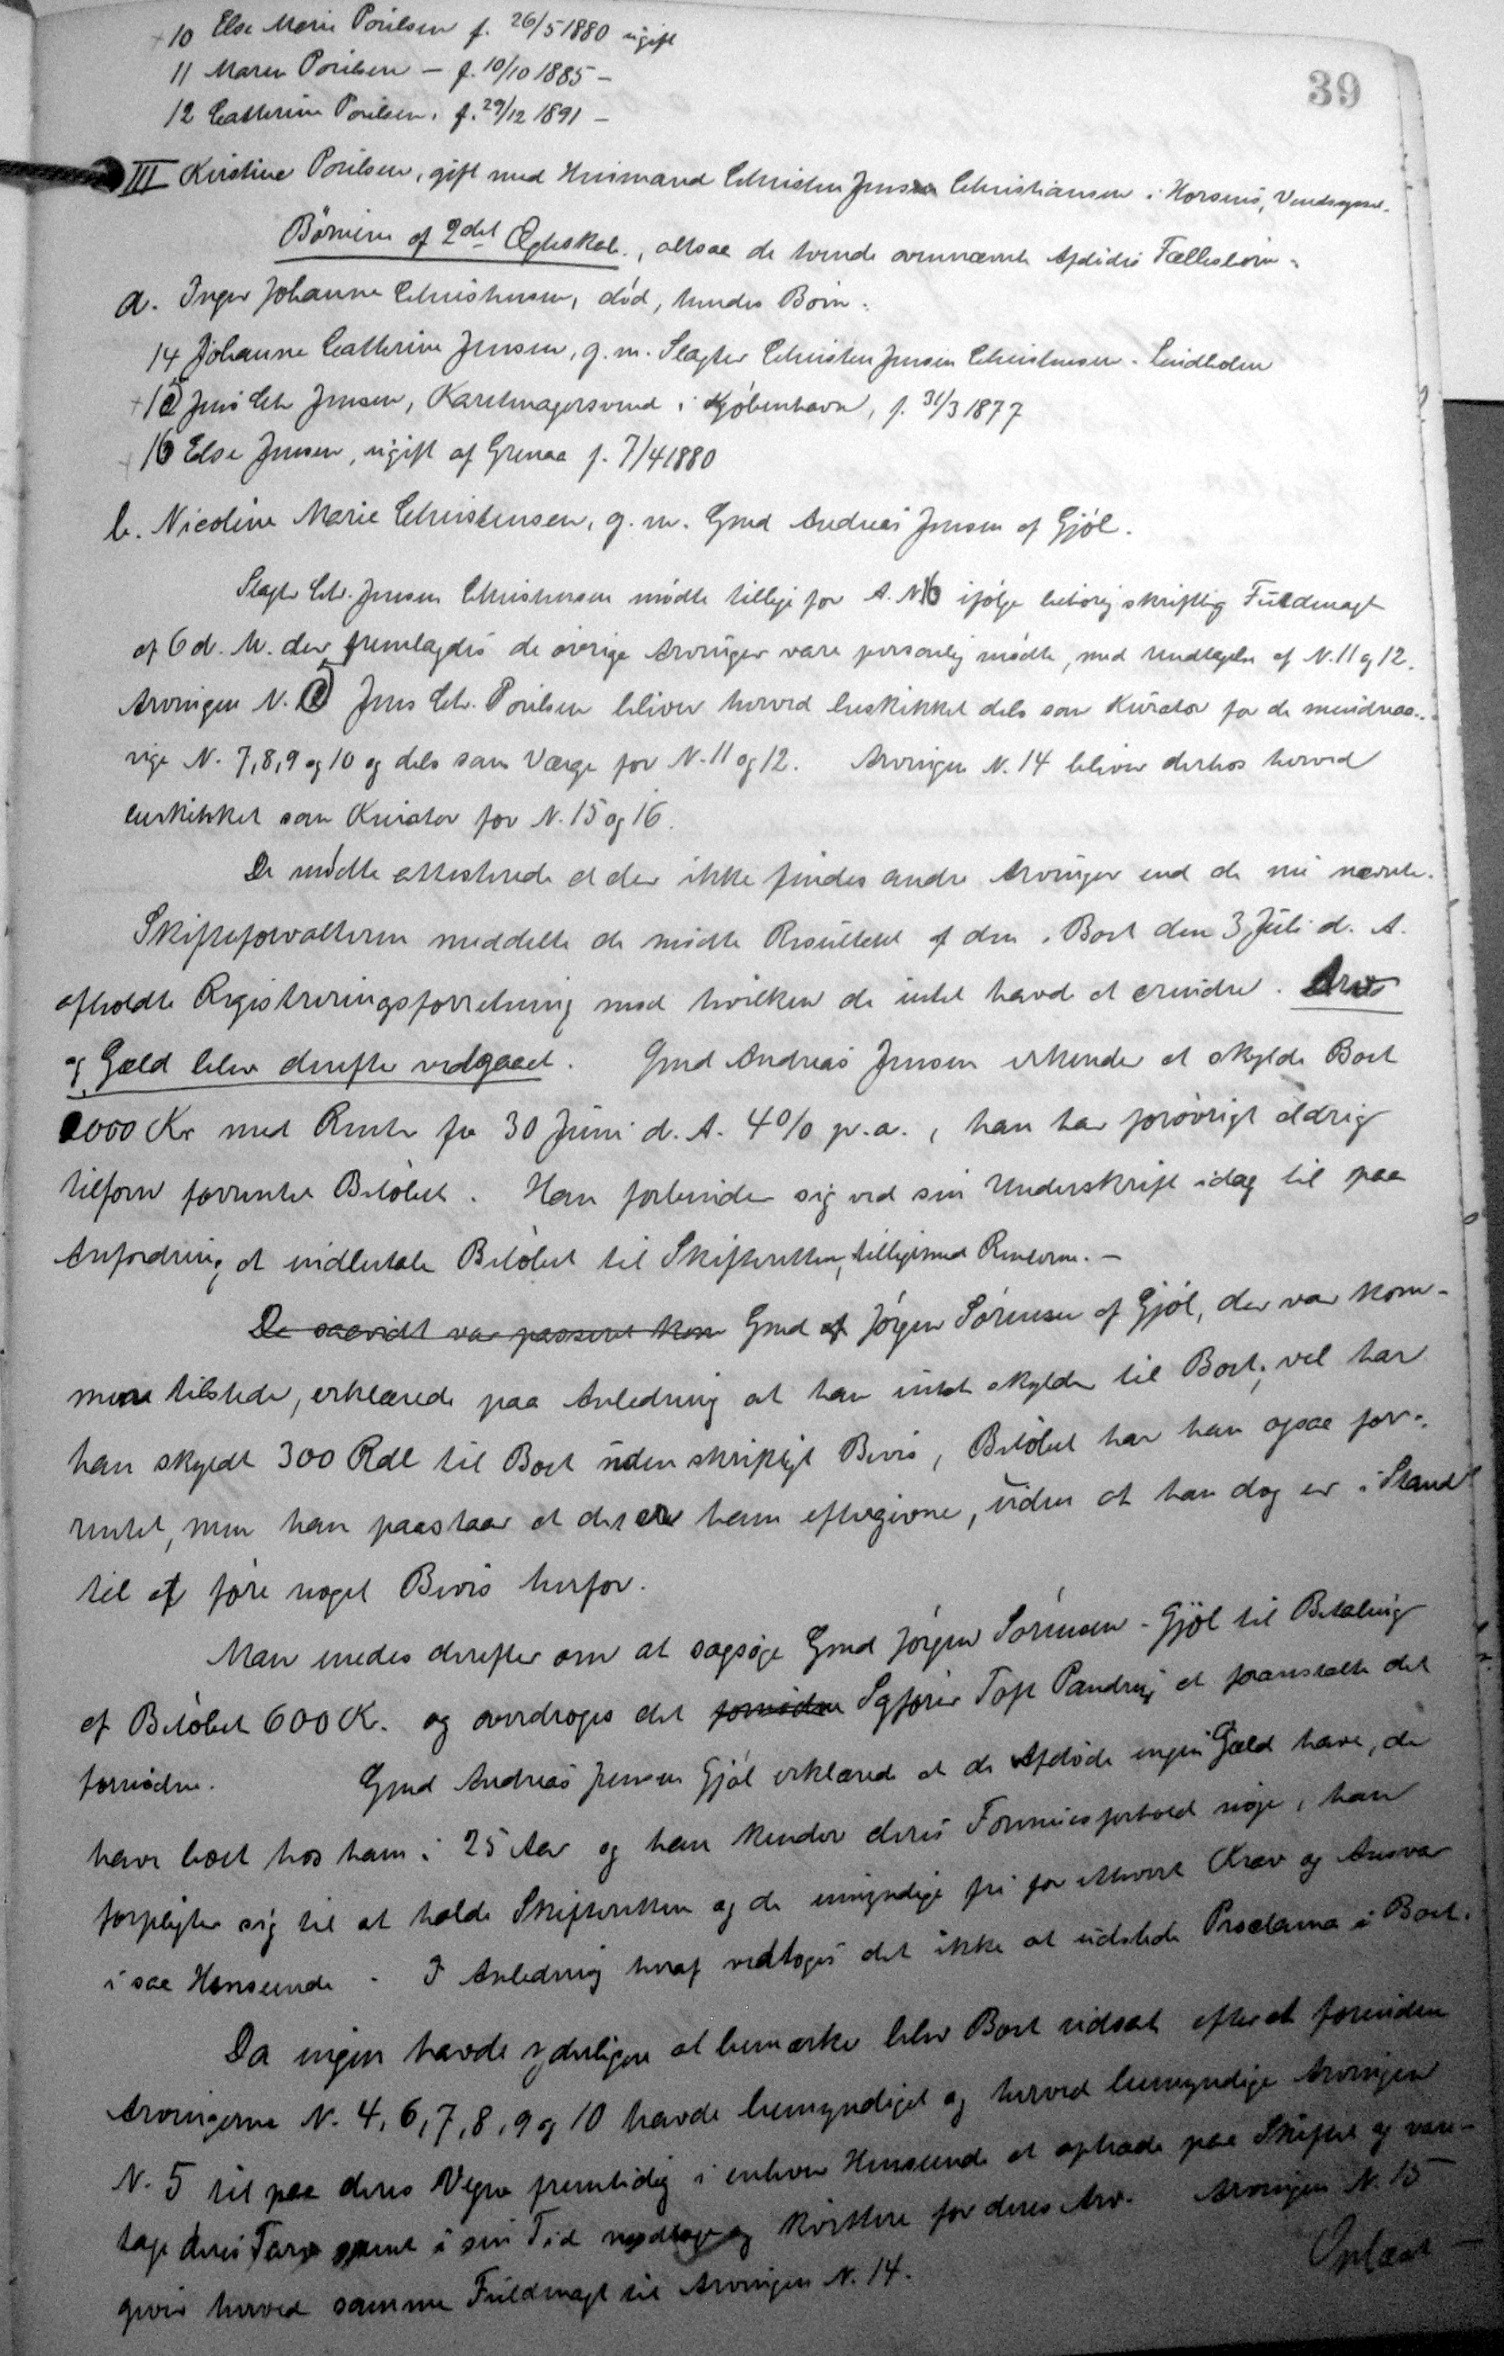 39
10 Else Marie Poulsen f. 26/5 1880 ugift
11 Maren Poulsen — f. 10/10 1885 —
12 Cathrine Poulsen, f. 29/12 1891 —
III Kirstine Poulsen, gift med Huusmand Christen Jensen Christiansen i Horsens, Vendsyssel.
Börnene af 2det Ægteskab, altsaa de tvende ovennævnte Afdödes Fællesbörn.
a. Inger Johanne Christensen, död, hendes Börn:
14 Johanne Cathrine Jensen, g. m. Slagter Christen Jensen Christensen - Lindholm
15 Jens Chr Jensen, Karetmagersvend i Kjøbenhavn, f. 31/3 1877
16 Else Jensen, ugift af Grenaa f. 7/4 1880
b. Nicoline Marie Christensen, g. m. Gmd Andreas Jensen af Gjöl.
Slagter Chr. Jensen Christensen mödte tillige for A. N 16 ifölge behörig skriftlig Fuldmagt
af 6 d. M. der fremlagdes de övrige Arvinger vare personlig mödte, med Undtagelse af N. 11 og 12.
Arvingen N. Jens Chr. Poulsen bliver herved beskikket dels som Kurator for de mindreaa-
rige N. 7, 8, 9 og 10 og dels som Værge for N. 11 og 12. Arvingen N. 14 bliver derhos herved
beskikket som Kurator for N. 15 og 16.
De mödte attesterede at der ikke findes andre Arvinger end de nu nævnte.
Skifteforvalteren meddelte de mödte Resultatet af den i Boet den 3 Juli d. A.
afholdte Registreringsforretning mod hvilken de intet havde at erindre. Arv
og Gæld blev derefter vedgaaet. Gmd Andreas Jensen erkender at skylde Boet
2000 Kr med Rente fra 30 Juni d. A. 4% p.a., han har forövrigt aldrig
tilforn forrentet Belöbet. Han forbinder sig ved sin Underskrift idag til paa
Anfordring at indbetale Belöbet til Skifteretten, tilligemed Renterne. —
De saavidt var passeret kom Gmd af Jörgen Sörensen af Gjöl, der var kom-
men tilstede, erklærede paa Anledning at han intet skylder til Boet; vel har
han skyldt 300 Rdl til Boet uden skriftligt Bevis, Belöbet har han ogsaa for-
rentet, men han paastaar at det er ham eftergivne, uden at han dog er i Stand
til at före noget Bevis herfor.
Man enedes derefter om at sagsöge Gmd Jörgen Sörensen - Gjöl til Betaling
af Belöbet 600 K. og overdroges det fornödne Sagförer Toft Pandrup at foranstalte det
fornödne. Gmd Andreas Jensen Gjöl erklærede at de Afdöde ingen Gæld have, de
have boet hos ham i 25 Aar og han kender deres Formuesforhold nöje, han
forpligter sig til at holde Skifteretten og de umyndige fri for ethvert Krav og Ansvar
i saa Henseende - I Anledning heraf vedtoges det ikke at udstede Proclama i Boet.
Da ingen havde yderligere at bemærke blev Boet udsat efter at forinden
Arvingerne N. 4, 6, 7, 8, 9 og 10 havde bemyndiget og herved bemyndige Arvingen
N. 5 til paa deres Vegne fremtidig i enhver Henseende at optræde paa Skiftet og vare-
tage deres Tarv samt i sin Tid modtage og kvittere for deres Arv. Arvingen N. 15
giver herved samme Fuldmagt til Arvingen N. 14.
Oplæst —